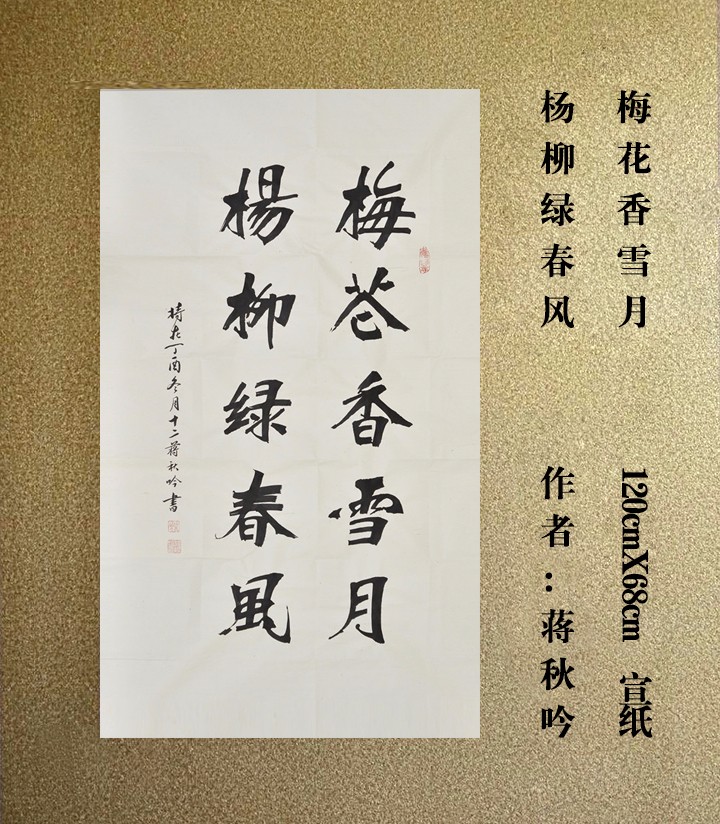 梅花香雪月
楊柳绿春風
時在丁酉冬月十二蒋秋吟書
梅花香雪月
杨柳绿春风
120cmX68cm 宣纸
作者：蒋秋吟